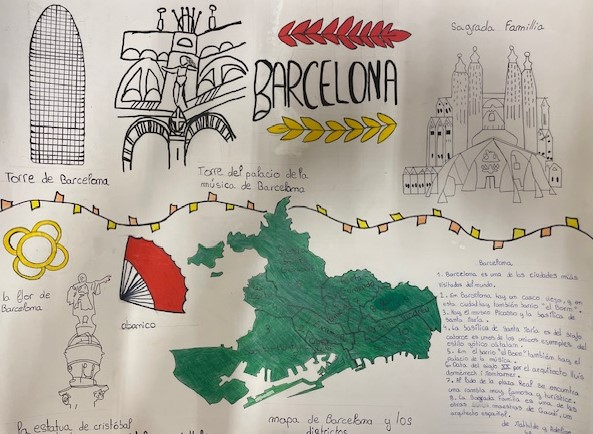 BARCELONA
Sagrada Famillia
Torre de Barcelona
Torre del palacio de la
música de Barcelona
la flor de
Barcelona
abanico
la estatua de cristóbal
mapa de Barcelona y los
districtos
Barcelona
1. Barcelona es una de las ciudades más
visitadas del mundo.
2. En Barcelona hay un casco viejo, y en
esta ciudad hay también barrio "el Born".
3. Hay el museo Picasso y la basílica de
Santa María.
4. La basílica de Santa María es del siglo
catorce es unos de los unicos ejemplos del
estilo gótico catalán.
5. En el barrio "el Born" también hay el
palacio de la música.
6. Data del siglo XX por el arquitecto lluis
domènech i Montaner.
7. Al lado de la plaza Real se encuentra
una rambla muy famosa y turística.
8. La Sagrada Familia es una de las
obras maestras de Gaudí, un
arquitecto español.
de Mathilde y